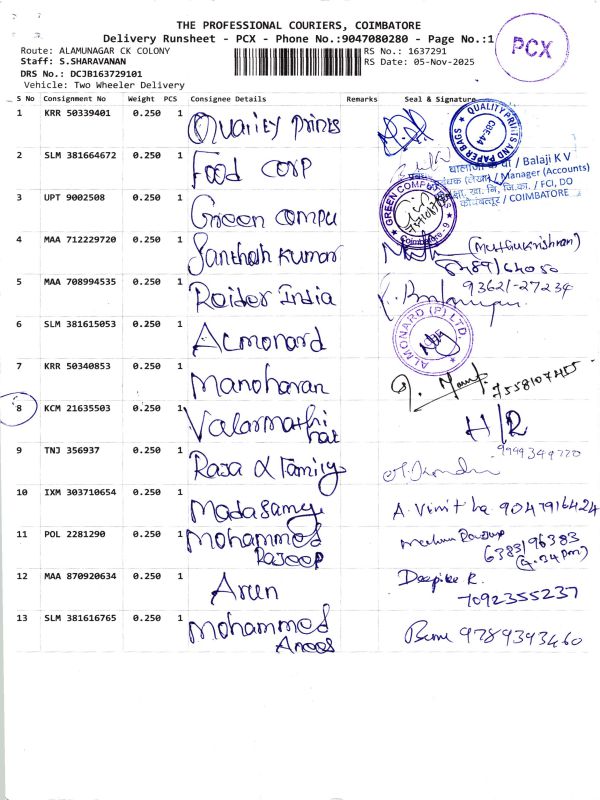 THE PROFESSIONAL COURIERS, COIMBATORE
Delivery Runsheet - PCX - Phone No.:9047080280 - Page No.:1
PCX
Route: ALAMUNAGAR CK COLONY
RS No.: 1637291
Staff: S.SHARAVANAN
RS Date: 05-Nov-2025
DRS No.: DCJB163729101
Vehicle: Two Wheeler Delivery
S No Consignment No Weight PCS Consignee Details Remarks Seal & Signature
1 KRR 50339401 0.250 1 Quality prints
QUALITY PRINTS AND PAPER BAGS
CBE-44
2 SLM 381664672 0.250 1 Food corp
बालाजी के वी / Balaji K V
(लेखा) / Manager (Accounts)
भा. खा. नि, जि.का. / FCI, DO
कोयंबत्तूर / COIMBATORE
3 UPT 9002508 0.250 1 Green compu
GREEN COMPU
Coimbatore - 9
4 MAA 712229720 0.250 1 Santhosh Kumar (Muthukrishnan)
5 MAA 708994535 0.250 1 Roider India 93621-27234
6 SLM 381615053 0.250 1 Almonard
ALMONARD (P) LTD
7 KRR 50340853 0.250 1 Manoharan 7558107455
8 KCM 21635503 0.250 1 Valarmathi H/R
9 TNJ 356937 0.250 1 Raja & Family 9999349720
10 IXM 303710654 0.250 1 Madasamy A. Vinitha 9047916424
11 POL 2281290 0.250 1 Mohammed
Rajeep 6383196383
(4.34 pm)
12 MAA 870920634 0.250 1 Arun Deepika R.
7092355237
13 SLM 381616765 0.250 1 Mohammed 9789393460
Anees